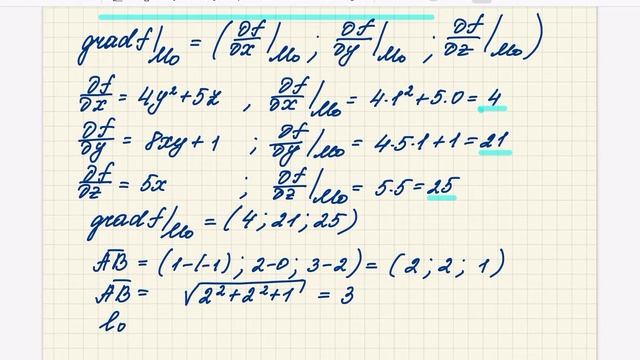 gradf|M₀ = (∂f/∂x|M₀ ; ∂f/∂y|M₀ ; ∂f/∂z|M₀)
∂f/∂x = 4y²+5z , ∂f/∂x|M₀ = 4·1²+5·0=4
∂f/∂y = 8xy+1 ; ∂f/∂y|M₀ = 4·5·1+1=21
∂f/∂z = 5x ; ∂f/∂z|M₀ = 5·5=25
gradf|M₀ = (4;21;25)
A̅B̅ = (1-(-1); 2-0; 3-2)=(2; 2; 1)
A̅B̅ = √(2²+2²+1) = 3
l₀